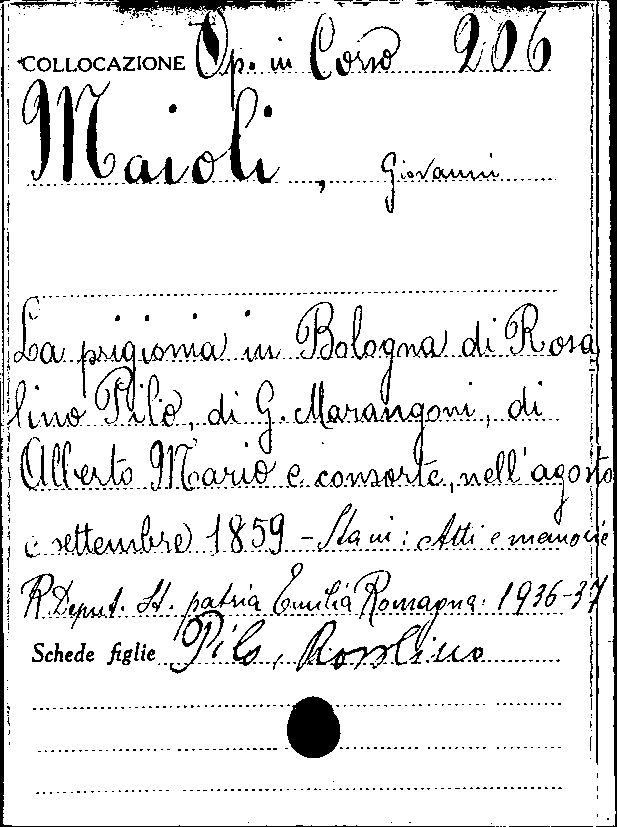 COLLOCAZIONE Op. in Corso 206
Maioli, Giovanni
La prigionia in Bologna di Rosa
lino Pilo, di G. Marangoni, di
Alberto Mario e consorte, nell'agosto
e settembre 1859 - Sta in: Atti e memorie
R. Deput. St. patria Emilia Romagna. 1936-37
Schede figlie Pilo, Rosolino